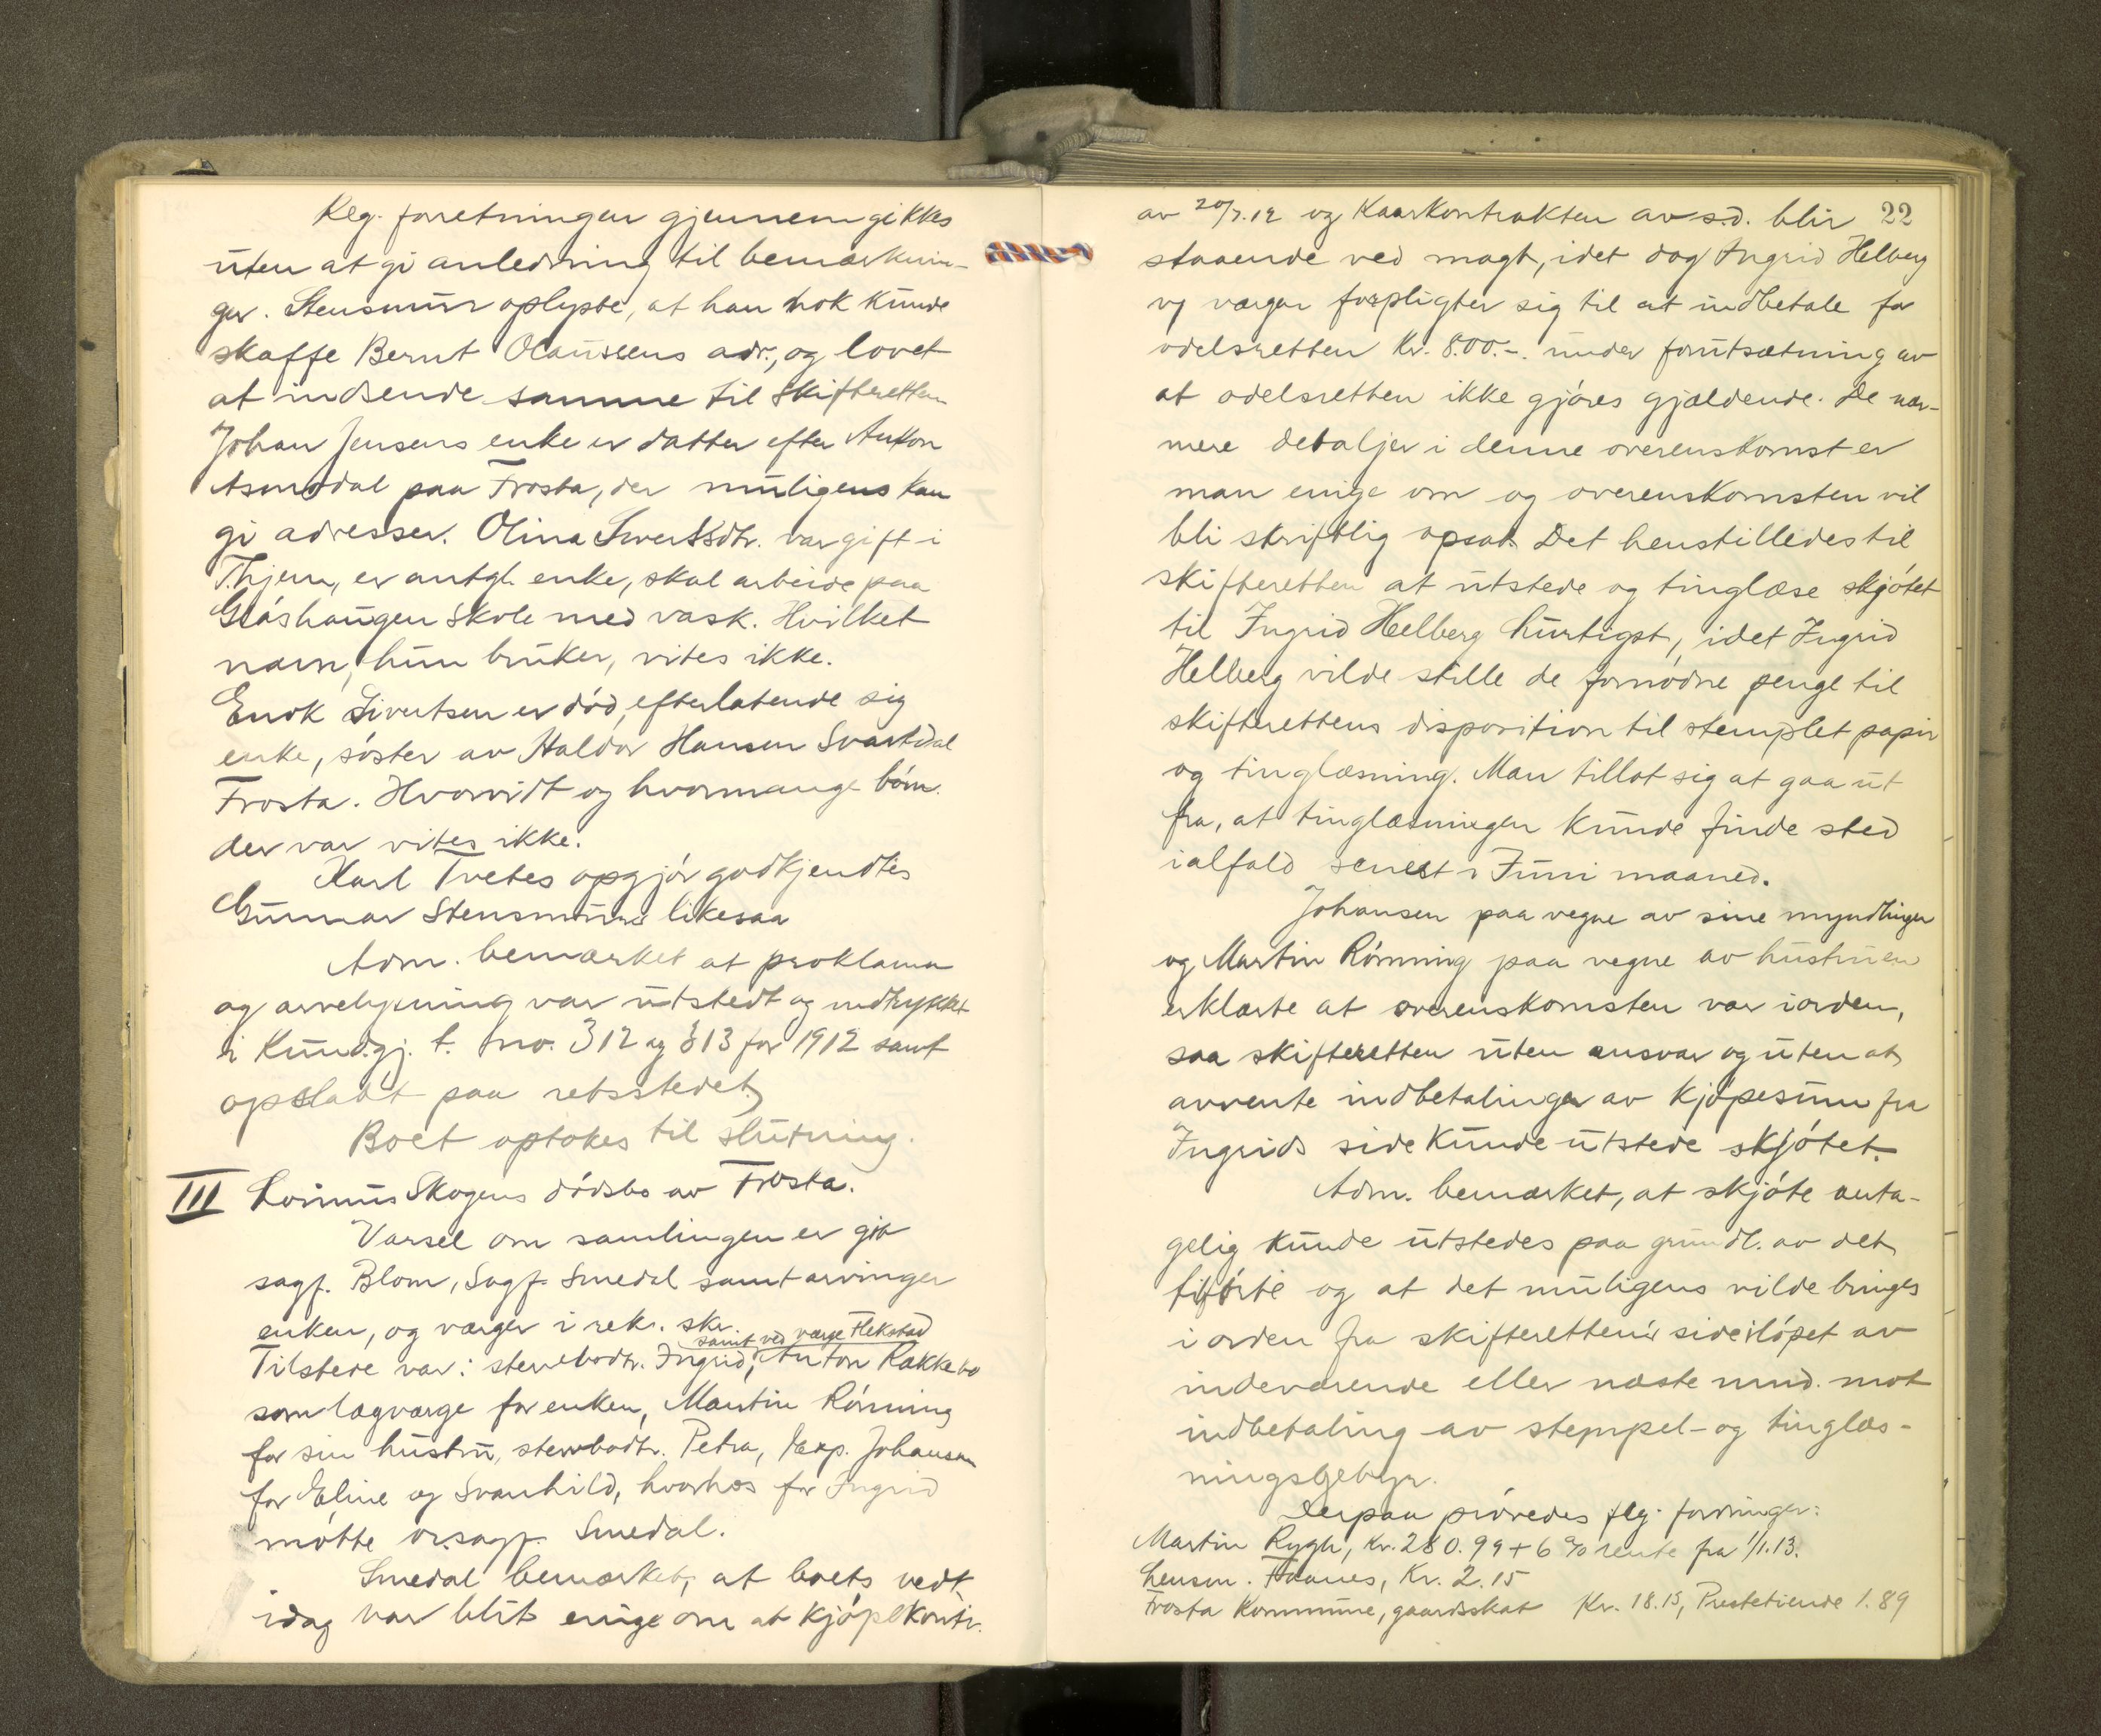 Reg. forretningen gjennemgikkes
uten at gi anledning til bemærknin-
ger. Stensmur oplyste, at han nok kunde
skaffe Bernt Olaussens adr., og lovet
at indsende samme til skifteretten
Johan Jensens enke er datter efter Anton
Asmodal paa Frosta, der muligens kan
gi adresser. Olina Sivertsdtr. var gift i
Thjem, er antgl. enke, skal arbeide paa
Gråshaugen Skole med vask. Hvilket
navn, hun bruker, vites ikke.
Enok Sivertsen er död, efterlatende sig
enke, söster av Haldor Hansen Svartdal
Frosta. Hvorvidt og hvormange börn
der var vites ikke.
Karl Tvetes opgjör godkjendtes
Gunnar Stensmurs likesaa
Adm. bemærket at proklama
og arvelysning var utstedt og indrykket
i Kundgj. t. no. 312 og 313 for 1912 samt
opslaat paa retsstedet
Boet optokes til slutning.
III Lorinus Skogens dödsbo av Frosta.
Varsel om samlingen er git
sagf. Blom, Sagf. Smedal samt arvinger
enken, og verger i rek. skr.
samt ved værge Flekstad
Tilstede var: stervbodtr. Ingrid, Anton Rækkebo
som lagværge for enken, Martin Rönning
for sin hustru, stervbodtr. Petra, Exp. Johansen
for Eline og Svanhild, hvorhos for Ingrid
mötte o.r.sagf. Smedal.
Smedal bemærket, at boets vedk.
idag var blit enige om at kjöpekontr.
av 20/7.12 og Kaarkontrakten av s.d. blir 22
staaende ved magt, idet dog Ingrid Helberg
og værger forpligter sig til at indbetale for
odelsretten Kr. 800.-. under forutsætning av
at odelsretten ikke gjöres gjældende. De nær-
mere detaljer i denne overenskomst er
man enige om og overenskomsten vil
bli skriftlig opsat. Det henstilledes til
skifteretten at utstede og tinglæse skjötet
til Ingrid Helberg hurtigst, idet Ingrid
Helberg vilde stille de fornödne penge til
skifterettens disposition til stemplet papir
og tinglæsning. Man tillot sig at gaa ut
fra, at tinglæsningen kunde finde sted
ialfald senest i Juni maaned.
Johansen paa vegne av sine myndlinger
og Martin Rönning paa vegne av hustruen
erklærte at overenskomsten var i orden,
saa skifteretten uten ansvar og uten at
avvente indbetalinger av kjöpesum fra
Ingrids side kunde utstede skjötet.
Adm. bemærket, at skjöte anta-
gelig kunde utstedes paa grundl. av det
tilförte og at det muligens vilde bringes
i orden fra skifterettens side i löpet av
indeværende eller næste mnd. mot
indbetaling av stempel- og tinglæs-
ningsgebyr.
Derpaa prövedes flg. fordringer:
Martin Rygh, kr. 280.99 + 6 % rente fra 1/1.13.
Lensm. Faanes, Kr. 2.15
Frosta Kommune, gaardsskat Kr. 18.13, Prestetiende 1.89